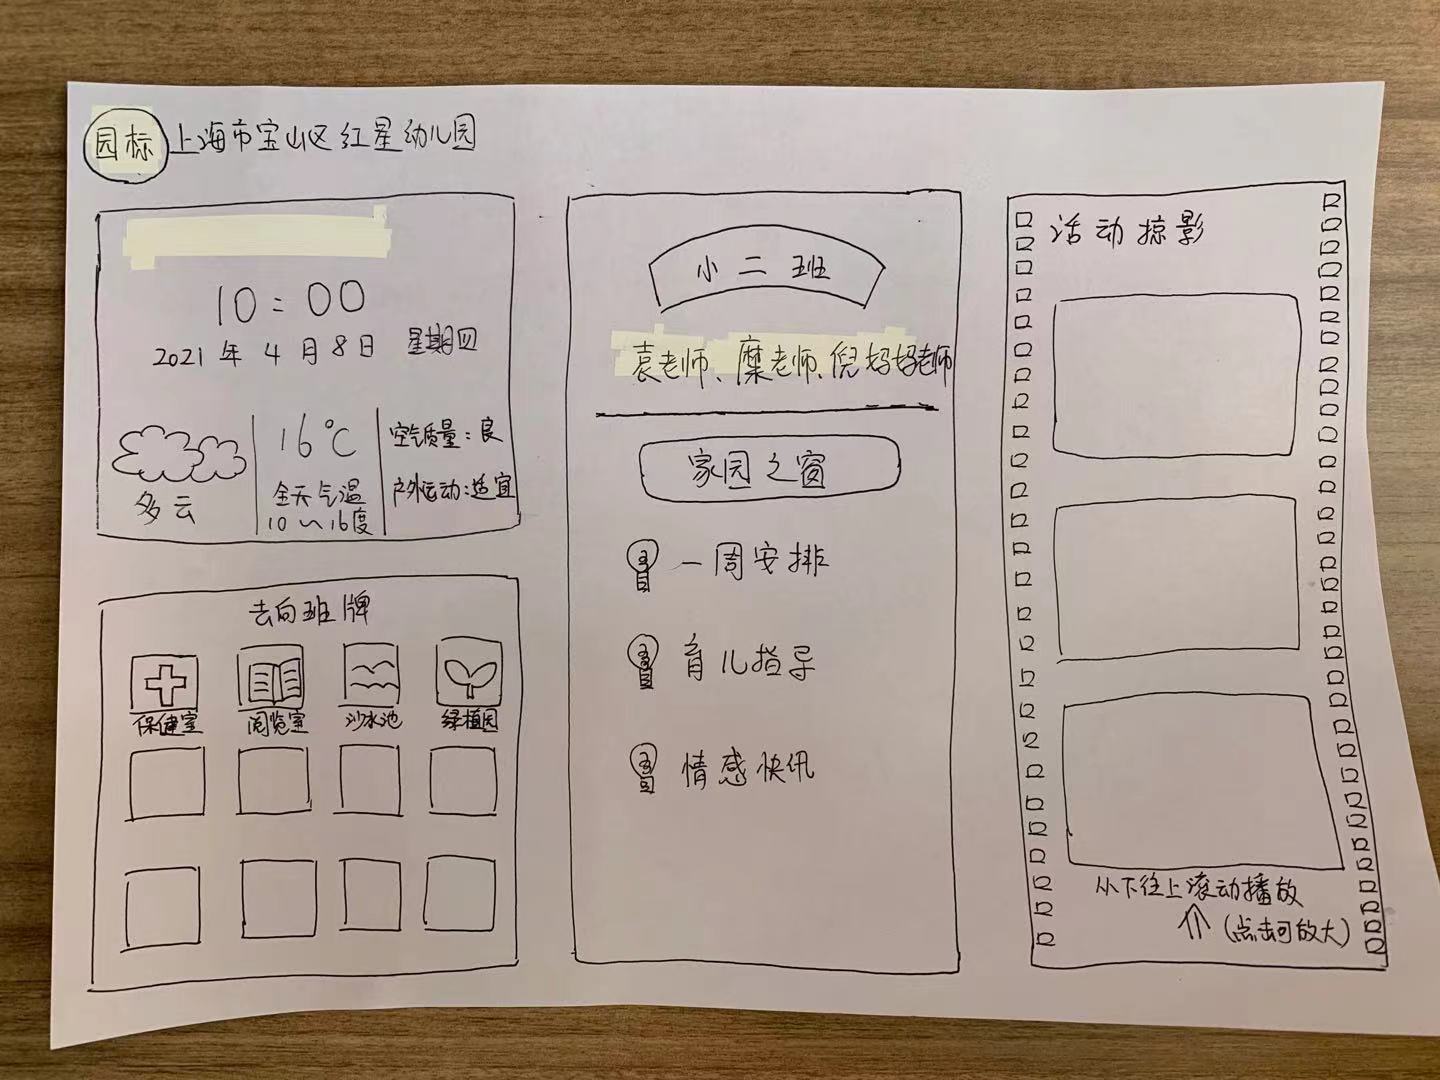 园标 上海市宝山区红星幼儿园
10:00
2021年4月8日 星期四
多云
16℃
全天气温
10~16度
空气质量:良
户外运动:适宜
去向班牌
保健室 阅览室 沙水池 绿植园
小二班
袁老师、糜老师、倪妈妈老师
家园之窗
一周安排
育儿指导
情感快讯
活动掠影
从下往上滚动播放
(点击可放大)